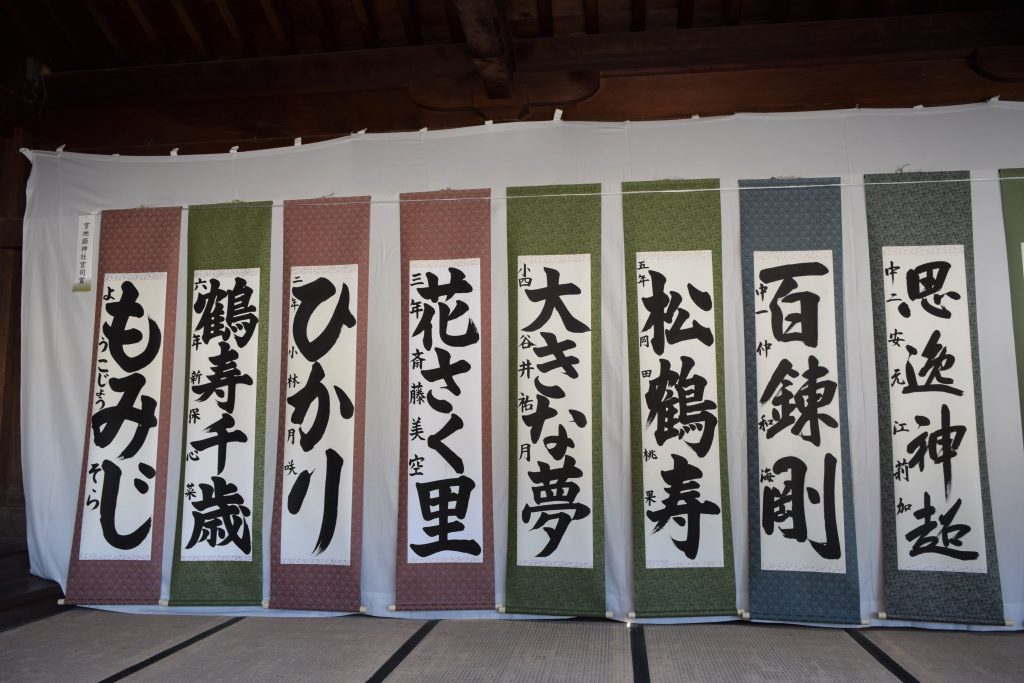 思逸神超
中二 安元江莉加
百錬剛
中一 仲和海
松鶴寿
五年 岡田桃果
大きな夢
小四 谷井祐月
花さく里
三年 斎藤美空
ひかり
二年 小林月咲
鶴寿千歳
六年 新保心菜
もみじ
ようこじょう そら
宮地嶽神社宮司賞